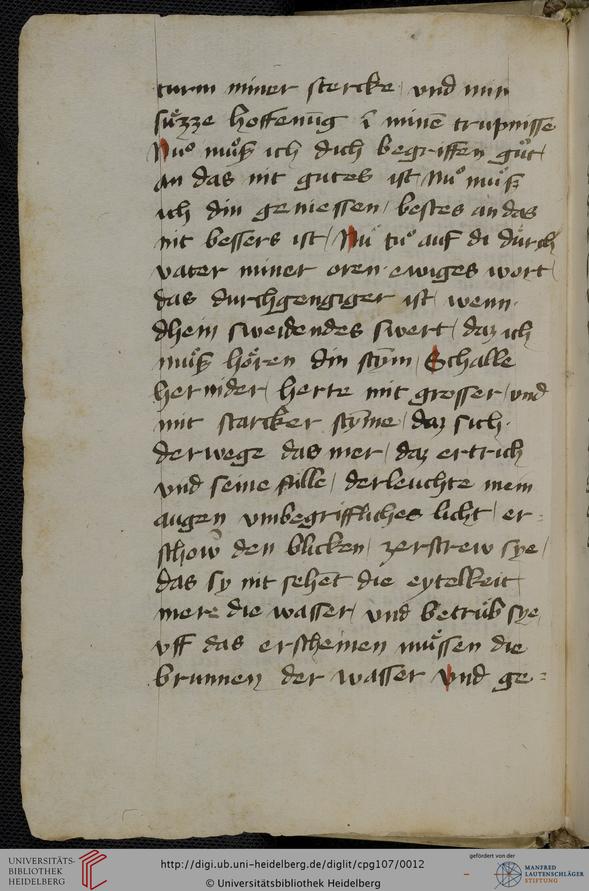 turm miner stercke / vnd min
suͤzze hoffenūg ī minē trupnisse
Nuͦ muͦß ich dich begriffen guͦt /
an das nit gutes ist / Nuͦ muͦß
ich din geniessen / bestes an das
nit bessers ist / Nu tuͦ auf di durch
vater miner oren · ewiges wort /
das durchgengiger ist / wenn ·
dhein sweidendes swert / daz ich
muͦß hoͤren din stȳm / Schalle
her nider / herre mit grosser / vnd
mit starcker stȳme / daz sich ·
derwege das mer / daz ertrich
vnd seine fülle / derleuchte mein
augen vmbegriffliches licht / er =
schow den blicken / zerstrew sye /
das sy nit sehēt die eytelkeit /
mere die wasser / vnd betruͤb sye
vff das erscheinen muͤssen die
brunnen der wasser vnd ge =
UNIVERSITÄTS-
BIBLIOTHEK
HEIDELBERG
http://digi.ub.uni-heidelberg.de/diglit/cpg107/0012
© Universitätsbibliothek Heidelberg
gefördert von der
MANFRED
LAUTENSCHLÄGER
STIFTUNG